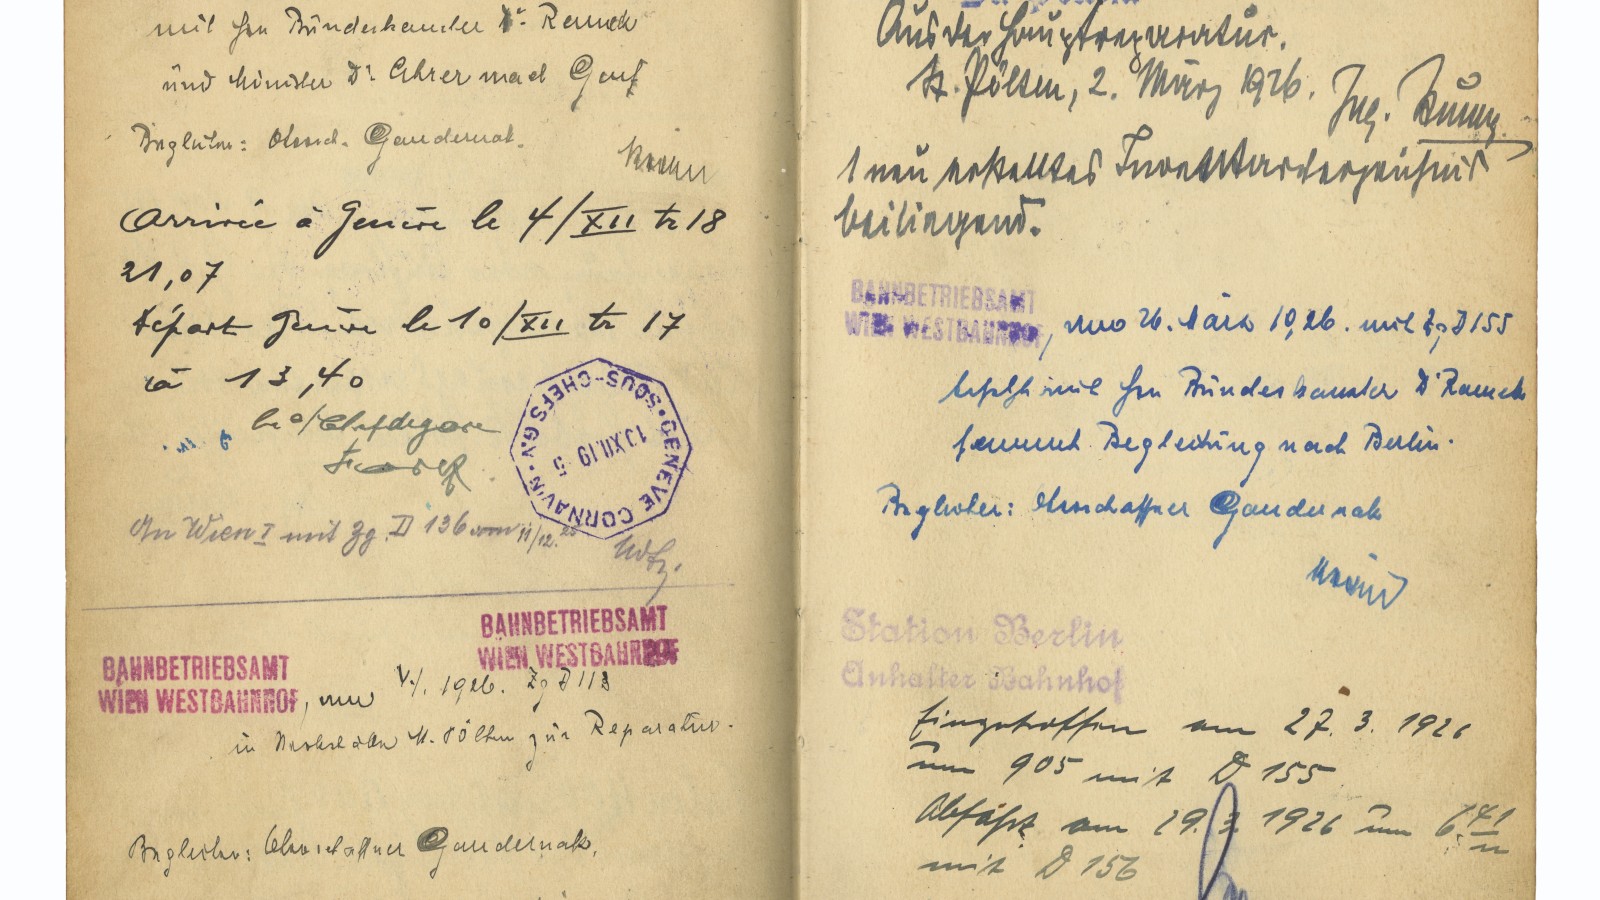 mit Hrn Bundeskanzler Dr Ramek
und Minister Dr nach Genf
Begleiter: Obersch. Gandernak.
Arrivée à Genève le 4/XII tr 18
21,07
départ Genève le 10/XII tr 17
à 13,40
GENEVE CORNAV'N • SOUS-CHEFS G.V. •
10 XII.19 5
An Wien I mit Zg. D 136 vom 11/12.25
BAHNBETRIEBSAMT
WIEN WESTBAHNHOF
BAHNBETRIEBSAMT
WIEN WESTBAHNHOF, am 1926. Zg D 113
in St. Pölten zur Reparatur.
Begleiter: Oberschaffner Gandernak.
Aus der Hauptreparatur.
St. Pölten, 2. März 1926. Ing.
1 neu erstelltes Inventarverzeichnis
beiliegend.
BAHNBETRIEBSAMT
WIEN WESTBAHNHOF, am 26. März 1926. mit Zg D 155
besetzt mit Hrn Bundeskanzler Dr Ramek
sammt Begleitung nach Berlin.
Begleiter: Oberschaffner Gandernak
Station Berlin
Anhalter Bahnhof
Eingetroffen am 27. 3. 1926
um 905 mit D 155
Abfahrt am 29. 3. 1926 um 6.41
mit D 156